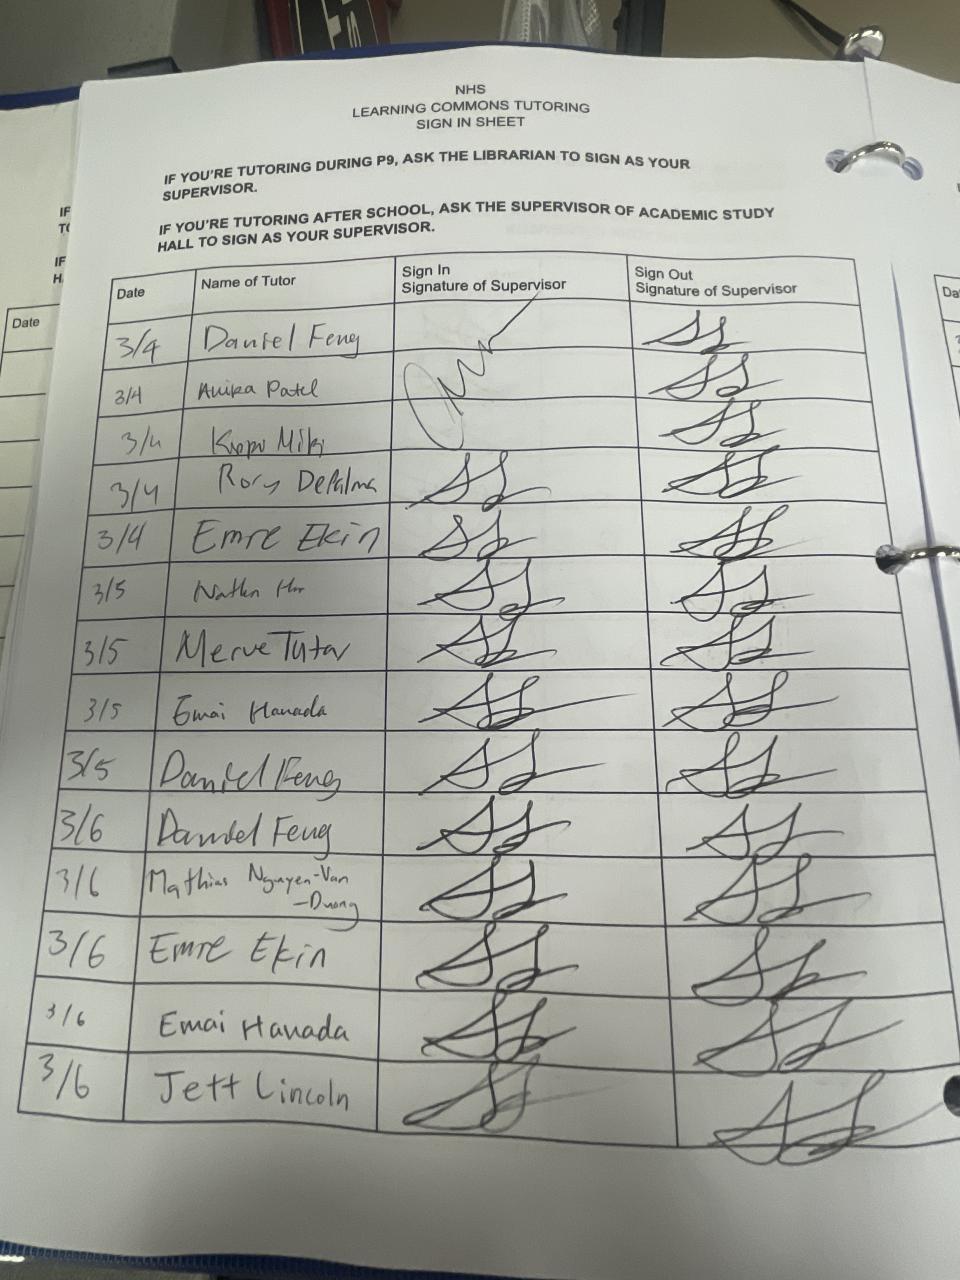 NHS
LEARNING COMMONS TUTORING
SIGN IN SHEET
IF YOU'RE TUTORING DURING P9, ASK THE LIBRARIAN TO SIGN AS YOUR
SUPERVISOR.
IF YOU'RE TUTORING AFTER SCHOOL, ASK THE SUPERVISOR OF ACADEMIC STUDY
HALL TO SIGN AS YOUR SUPERVISOR.
Date Name of Tutor Sign In Signature of Supervisor Sign Out Signature of Supervisor
3/4 Daniel Feng
3/4 Anika Patel
3/4 Miki
3/4 Rory DePalma
3/4 Emre Ekin
3/5
3/5 Merve Tutar
3/5 Emai Hanada
3/5 Daniel Feng
3/6 Daniel Feng
3/6 Mathias Nguyen-Van
-Duong
3/6 Emre Ekin
3/6 Emai Hanada
3/6 Jett Lincoln
Date